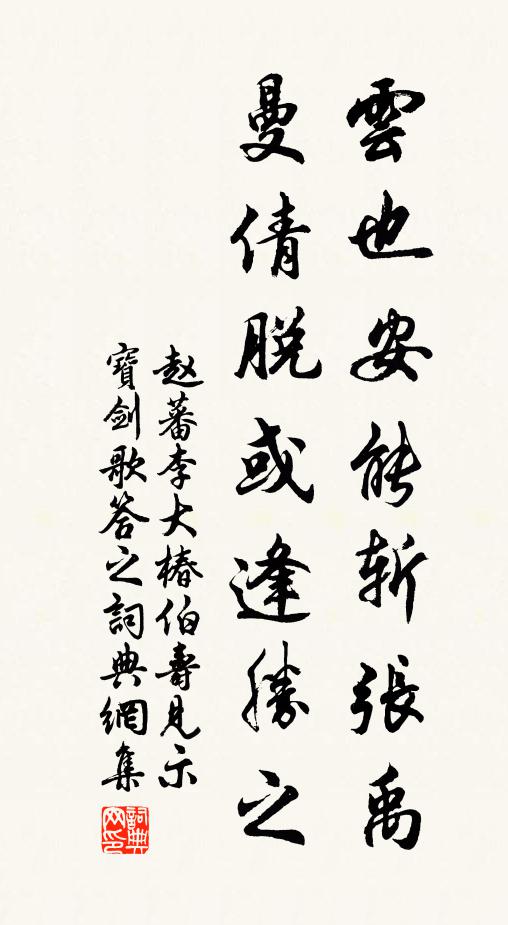 雲也安能斬張禹
曼倩脱或逢勝之
赵蕃李大椿伯壽見示
寶劍歌答之詞典網集
詞典网印